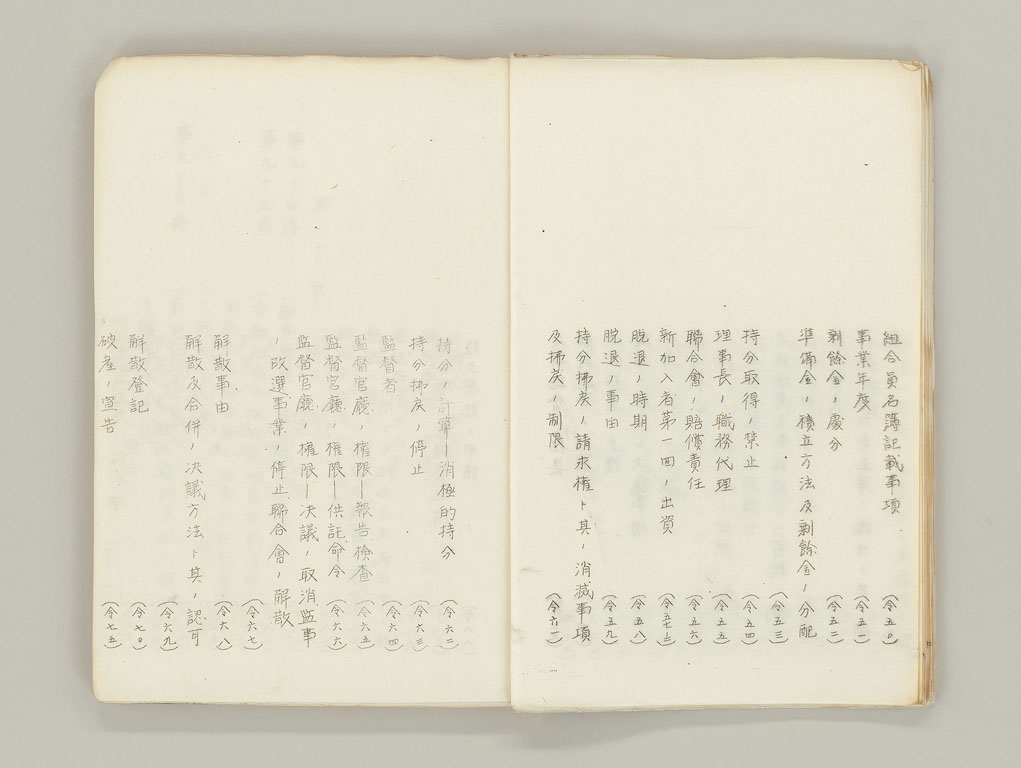 組合員名簿記載事項 (令五〇)
事業年度 (令五一)
剰餘金ノ處分 (令五二)
準備金ノ積立方法及剰餘金ノ分配
(令五三)
持分取得ノ禁止 (令五四)
理事長ノ職務代理 (令五五)
聯合會ノ賠償責任 (令五六)
新加入者第一回ノ出資 (令五七)
脱退ノ時期 (令五八)
脱退ノ事由 (令五九)
持分拂戻ノ請求權ト其ノ消滅事項
及拂戻ノ制限 (令六一)
持分ノ計算―消極的持分 (令六二)
持分拂戻ノ停止 (令六三)
監督者 (令六四)
監督官廳ノ権限―報告検査 (令六五)
監督官廳ノ権限―供託命令 (令六六)
監督官廳ノ権限―决議ノ取消監事
ノ改選事業ノ停止聯合會ノ解散
(令六七)
解散事由 (令六八)
解散及合併ノ决議方法ト其ノ認可
(令六九)
解散登記 (令七〇)
破産ノ宣告 (令七五)